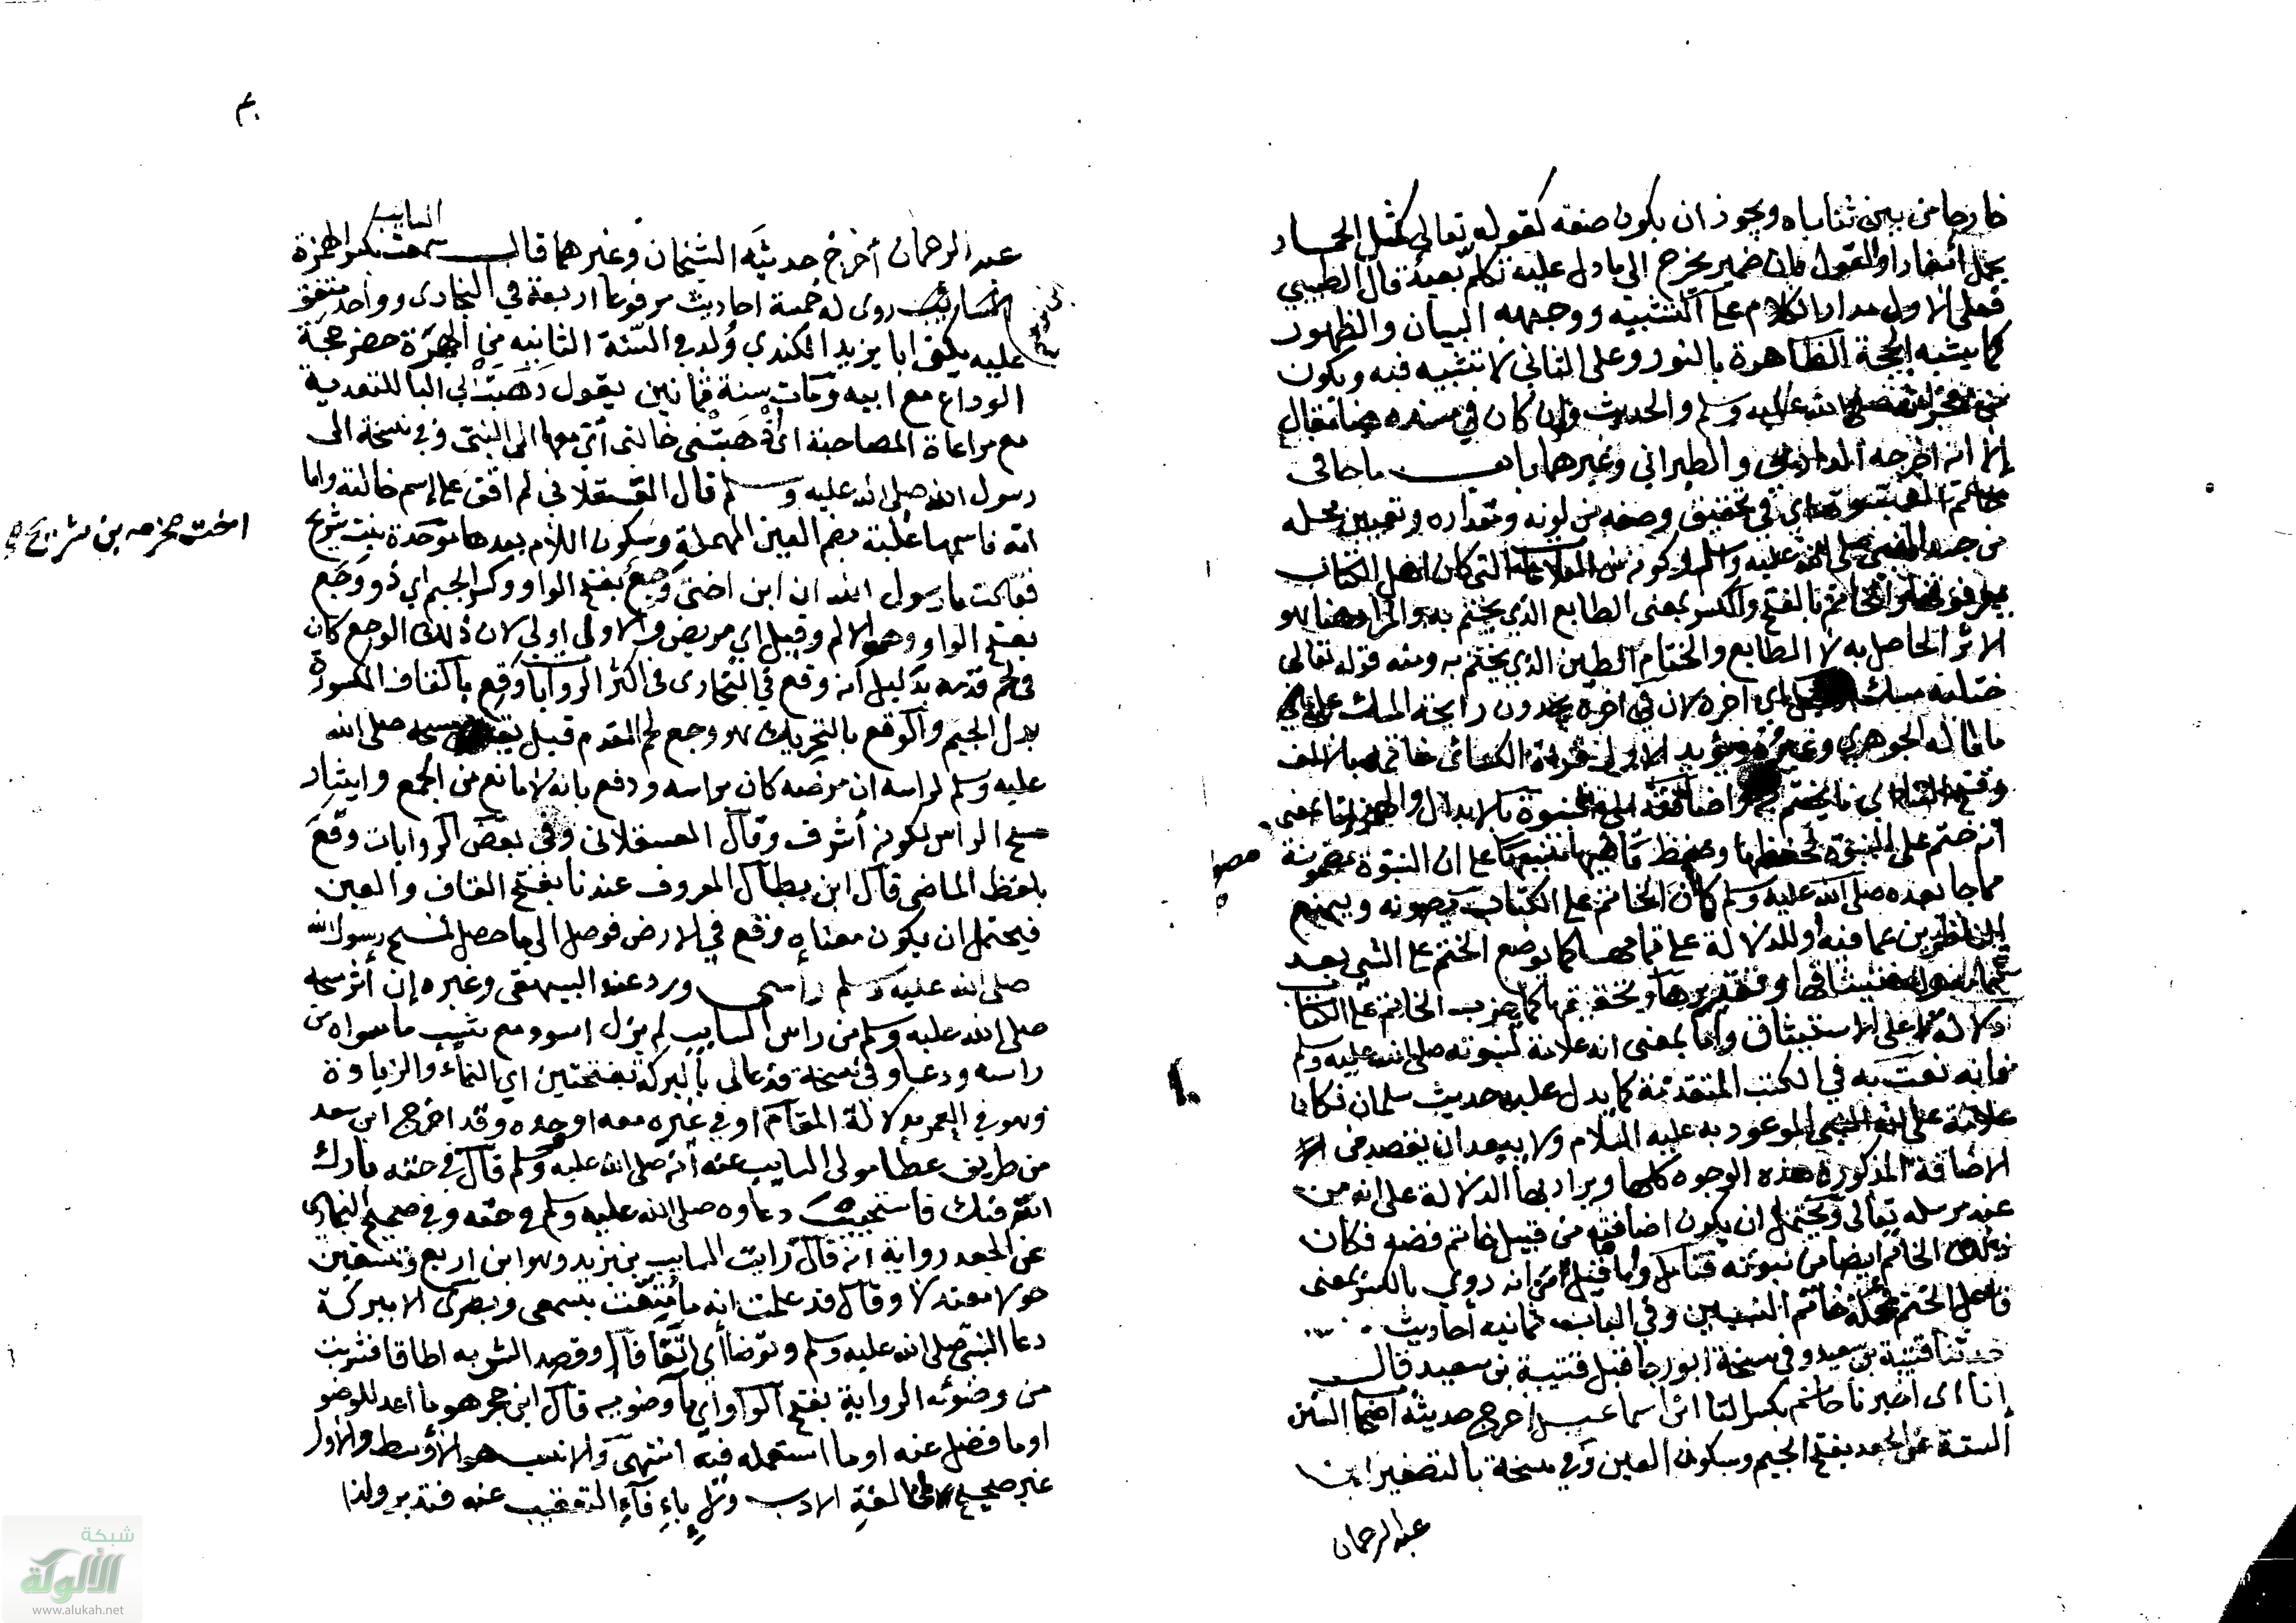 خارجا من بين ثناياه ويجوز ان يكون صفة كقوله تعالى كمثل الحمار
يحمل أسفارا والقول بان ضمير يخرج الى ما دل عليه تكلم بعيد قال الطيبي
فعلى الاول مدار الكلام على التشبيه ووجهه البيان والظهور
كما يشبه الحجة الظاهرة بالنور وعلى الثاني لا تشبيه فيه ويكون
صلى الله عليه وسلم والحديث وان كان في سنده مقال
إلا انه اخرجه الدارمي والطبراني وغيرهما باب ما جا في
خاتم النبوة اي في تحقيق وصفه من لونه ومقداره وتعيين محله
من جسد النبي صلى الله عليه وسلم كونه من العلامات التي كان اهل الكتاب
يعرفونه والخاتم بالفتح والكسر بمعنى الطابع الذي يختم به والمراد هنا هو
الاثر الحاصل به لا الطابع والختام الطين الذي يختم به ومنه قوله تعالى
ختامه مسك اي اخره لان في اخره يجدون رايحة المسك على
ما قاله الجوهري وغيره ويؤيد الاول قراءة الكسائي خاتمه بالالف
وفتح التا اي ما يختم به واضافته الى النبوة بالابدال والهمز اما بمعنى
انه ختم على النبوة لحفظها وحفظ ما فيها تنبيها على ان النبوة مصونة
مما جا بعده صلى الله عليه وسلم كما أن الخاتم على الكتاب يصونه ويمنع
الناظرين عما فيه او للدلالة على تمامها كما يوضع الختم على الشي بعد
تمامه او استيثاقها وتقريرها وتحقيقها كما يضرب الخاتم على الكتاب
دلالة على الاستيثاق واما بمعنى انه علامة لنبوته صلى الله عليه وسلم
فانه نعت به في الكتب المتقدمة كما يدل عليه حديث سلمان فكان
علامة على انه النبي الموعود به عليه السلام ولا يبعد ان يقصد من
الاضافة المذكورة هذه الوجوه كلها ويراد بها الدلالة على انه من
عند مرسله تعالى ويحتمل ان يكون اضافته من قبيل خاتم فضه فكان
ذلك الخاتم ايضا من نبوته فتامل واما قيل من انه روي بالكسر بمعنى
فاعل الختم خاتم النبيين وفي الباب ثمانيه أحاديث
حدثنا قتيبة بن سعيد وفي نسخة ابو رجا قبل قتيبة بن سعيد قال
إنا اى اخبرنا حاتم بكسر التا ابن اسماعيل اخرج حديثه اصحاب السنن
الستة عن الجعد بفتح الجيم وسكون العين وفي نسخة بالتصغير ابن
عبد الرحمان
عبد الرحمان أخرج حديثه الشيخان وغيرهما قال سمعت بكسر الهمزة
السايب
روى له خمسة احاديث مرفوعا اربعة في البخارى وواحد متفق
عليه يكنى ابا يزيد الكندي وُلد في السنة الثانية من الهجرة حضر حجة
الوداع مع ابيه ومات سنة ثمانين يقول ذهبت بي البا للتعدية
مع مراعاة المصاحبة اى اذهبتني خالتي أي معها الى النبي وفي نسخة الى
رسول الله صلى الله عليه وسلم قال العسقلاني لم اقف على اسم خالته واما
امه فاسمها علبة بضم العين المهملة وسكون اللام بعدها موحدة بنت شريح
اخت مخرمه بن شريح
فقالت يا رسول الله ان ابن اختى وَجِعٌ بفتح الواو وكسر الجيم اي ذو وجع
بفتح الواو وهو الالم وقيل اي مريض والاولى اولى لان ذلك الوجع كان
في لحم قدمه بدليل انه وقع في البخارى في اكثر الروايات وقع بالقاف المكسورة
بدل الجيم والوقع بالتحريك هو وجع لحم القدم قيل يقتضى مسحه صلى الله
عليه وسلم لراسه ان مرضه كان براسه ودفع بانه لا مانع من الجمع وايثار
مسح الراس لكونه أشرف وقال العسقلانى وفي بعض الروايات وقع
بلفظ الماضي قال ابن بطال المعروف عندنا بفتح القاف والعين
فيحتمل ان يكون معناه وقع في الارض فوصل الى ما حصل فمسح رسول الله
صلى الله عليه وسلم رأسى وورد عند البيهقى وغيره إن أثر مسحه
صلى الله عليه وسلم من راس السايب لم يزل اسود مع شيب ما سواه من
راسه ودعا وفي نسخة فدعا لى بالبركة بفتحتين اي النماء والزيادة
وهو في العمر بدلالة المقام او في غيره معه او وحده وقد اخرج ابن سعد
من طريق عطا مولى السايب عنه أنه صلى الله عليه وسلم قال في حقه بارك
الله فيك فاستجيبت دعاوه صلى الله عليه وسلم في حقه وفي صحيح البخارى
عن الجعد رواية انه قال رايت السايب بن يزيد وهو ابن اربع وتسعين
حولا معتدلا وقال قد علمت انه ما متعت بسمعى وبصرى الا ببركة
دعا النبي صلى الله عليه وسلم وتوضا أي اتفاقا او قصد الشربه اطاقا فشربت
من وضوئه الرواية بفتح الواو أي ما وضويه قال ابن حجر هو ما اعد للوضو
او ما فضل عنه او ما استعمله فيه انتهى والانسب هو الأوسط والاول
غير صحيح لمخالفة الادب وتاباه فآء التعقيب عنه فتدبر ولذا
شبكة
الألوكة
www.alukah.net